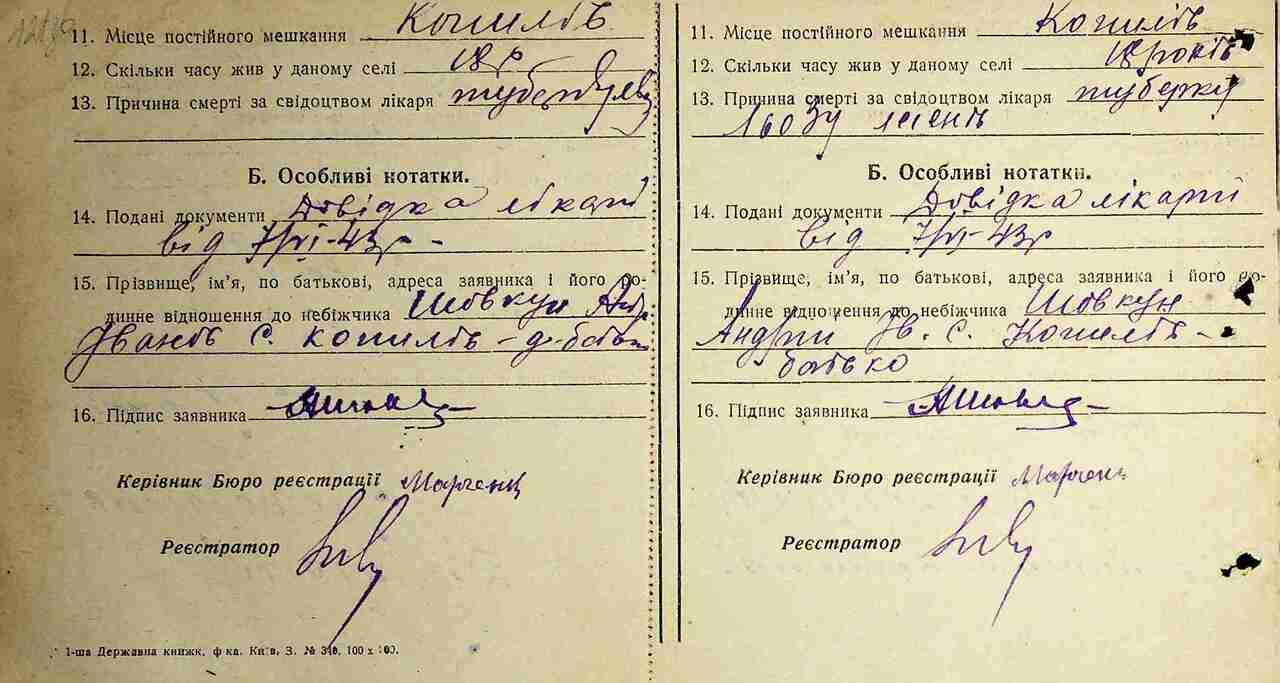 11. Місце постійного мешкання Копилів
12. Скільки часу жив у даному селі 18 р
13. Причина смерті за свідоцтвом лікаря туберкульоз
Б. Особливі нотатки.
14. Подані документи Довідка лікарні
від 7/VI-43р -
15. Прізвище, ім'я, по батькові, адреса заявника і його ро-
динне відношення до небіжчика Шовкун Андр.
Іванов С. Копилів -
16. Підпис заявника
Керівник Бюро реєстрації Марченк
Реєстратор
1-ша Державна книжк. ф-ка. Київ, З. № 340, 100 х 100.
11. Місце постійного мешкання Копилів
12. Скільки часу жив у даному селі 18 років
13. Причина смерті за свідоцтвом лікаря туберку
льозу легень
Б. Особливі нотатки.
14. Подані документи Довідка лікарні
від 7/VI-43р
15. Прізвище, ім'я, по батькові, адреса заявника і його ро-
динне відношення до небіжчика Шовкун
Андрій Ів. С. Копилів -
батько
16. Підпис заявника
Керівник Бюро реєстрації Марченк
Реєстратор